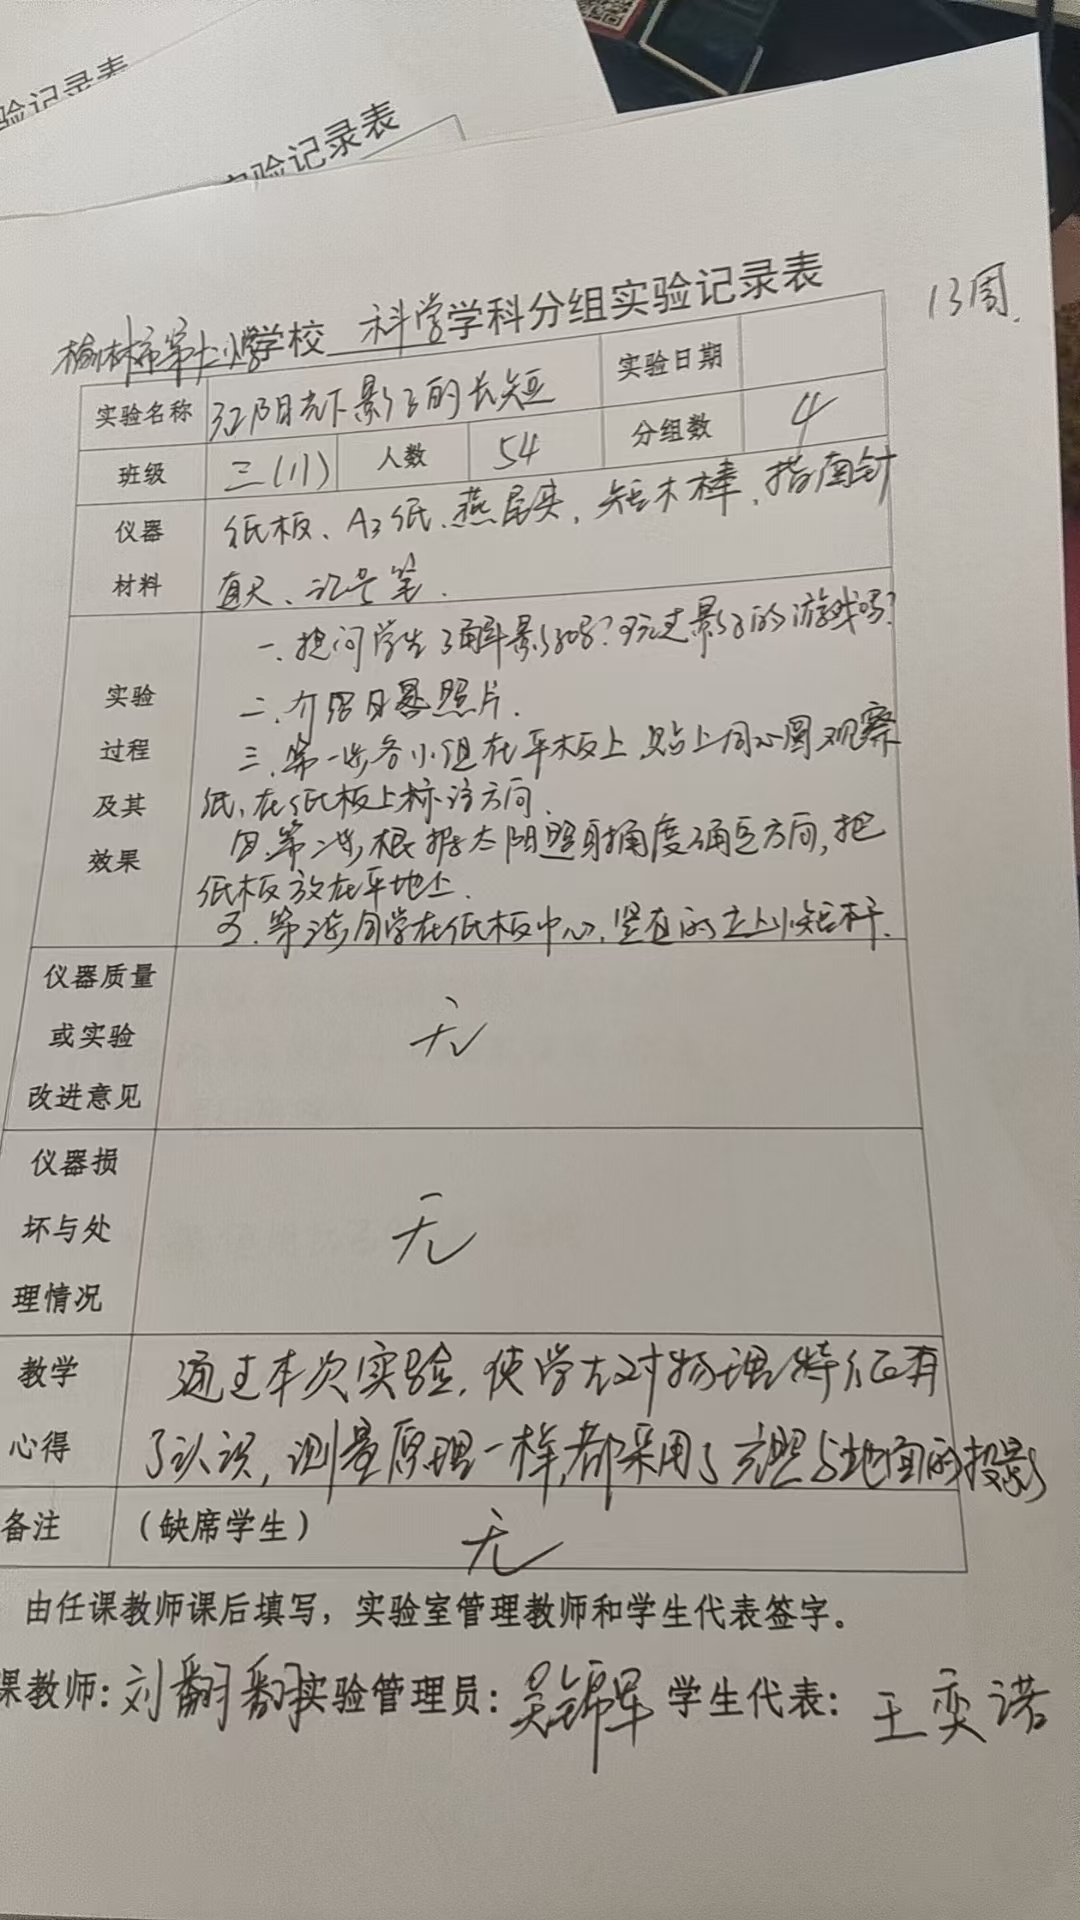 验记录表
实验记录表
13周.
榆林市第十小学学校 科学学科分组实验记录表
实验名称 阳光下影子的长短 实验日期
班级 三(11) 人数 54 分组数 4
仪器 纸板、A3纸、燕尾夹、短木棒、指南针
材料 直尺、记号笔.
实验
过程
及其
效果
一.提问学生了解影子吗?玩过影子的游戏吗?
二.介绍日晷照片.
三.第一步各小组在平板上贴上同心圆观察
纸,在纸板上标注方向.
四.第二步,根据太阳照射角度确定方向,把
纸板放在平地上.
五.第三步同学在纸板中心,竖直的立上小短杆.
仪器质量
或实验
改进意见
无
仪器损
坏与处
理情况
无
教学 通过本次实验,使学生对物理特征有
心得 了认识,测量原理一样,都采用了光照与地面的投影
备注 (缺席学生) 无
由任课教师课后填写，实验室管理教师和学生代表签字。
课教师: 刘翻翻 实验管理员: 吴锦军 学生代表: 王奕诺